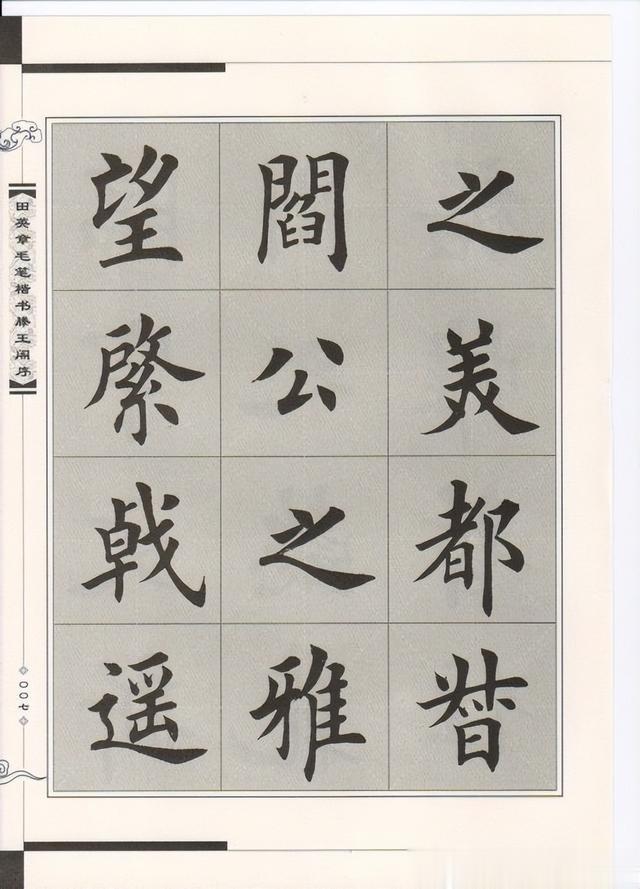 之美都督
閻公之雅
望綮戟遥
田英章毛笔楷书滕王阁序
〇〇七